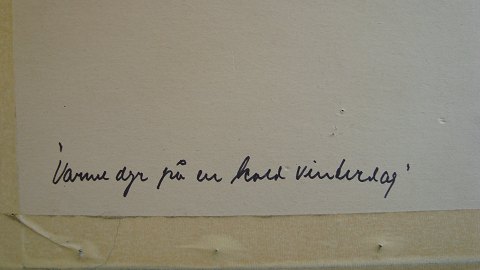 'Varme dyr på en kold vinterdag'